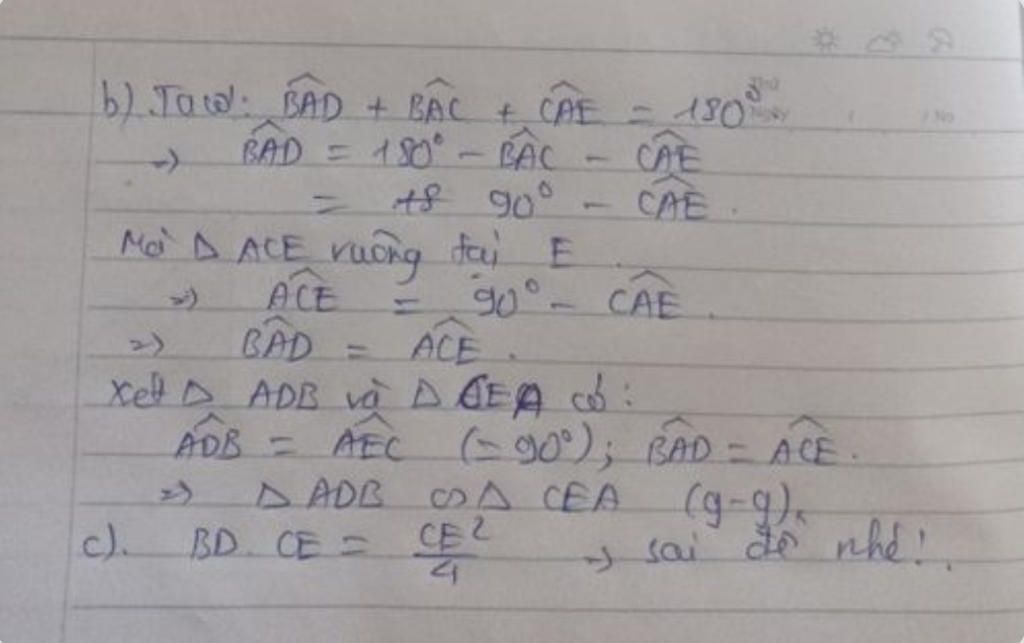 b). Ta có: \widehat{BAD} + \widehat{BAC} + \widehat{CAE} = 180°
=> \widehat{BAD} = 180° - \widehat{BAC} - \widehat{CAE}
= 90° - \widehat{CAE}.
Mà Δ ACE vuông tại E.
=> \widehat{ACE} = 90° - \widehat{CAE}.
=> \widehat{BAD} = \widehat{ACE}.
Xét Δ ADB và Δ CEA có:
\widehat{ADB} = \widehat{AEC} (= 90°); \widehat{BAD} = \widehat{ACE}.
=> Δ ADB ∽ Δ CEA (g-g).
c). BD. CE = \frac{CE^2}{4} -> sai đề nhé!.